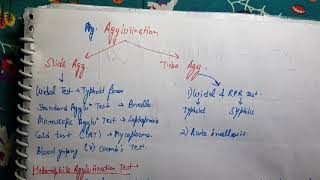 Agglutination
Slide Agg.
Tube Agg.
Widal Test → Typhoid fever
1) Widal & RPR test.
Typhoid
Syphilis
Standard Aggluⁿ Test → Brucella
Microscopic Aggluⁿ Test → Leptospirosis
2) Acute brucellosis.
Cold test (CAT) → Mycoplasma.
Blood typing (x) Coomb's Test.
Agglutination Test →